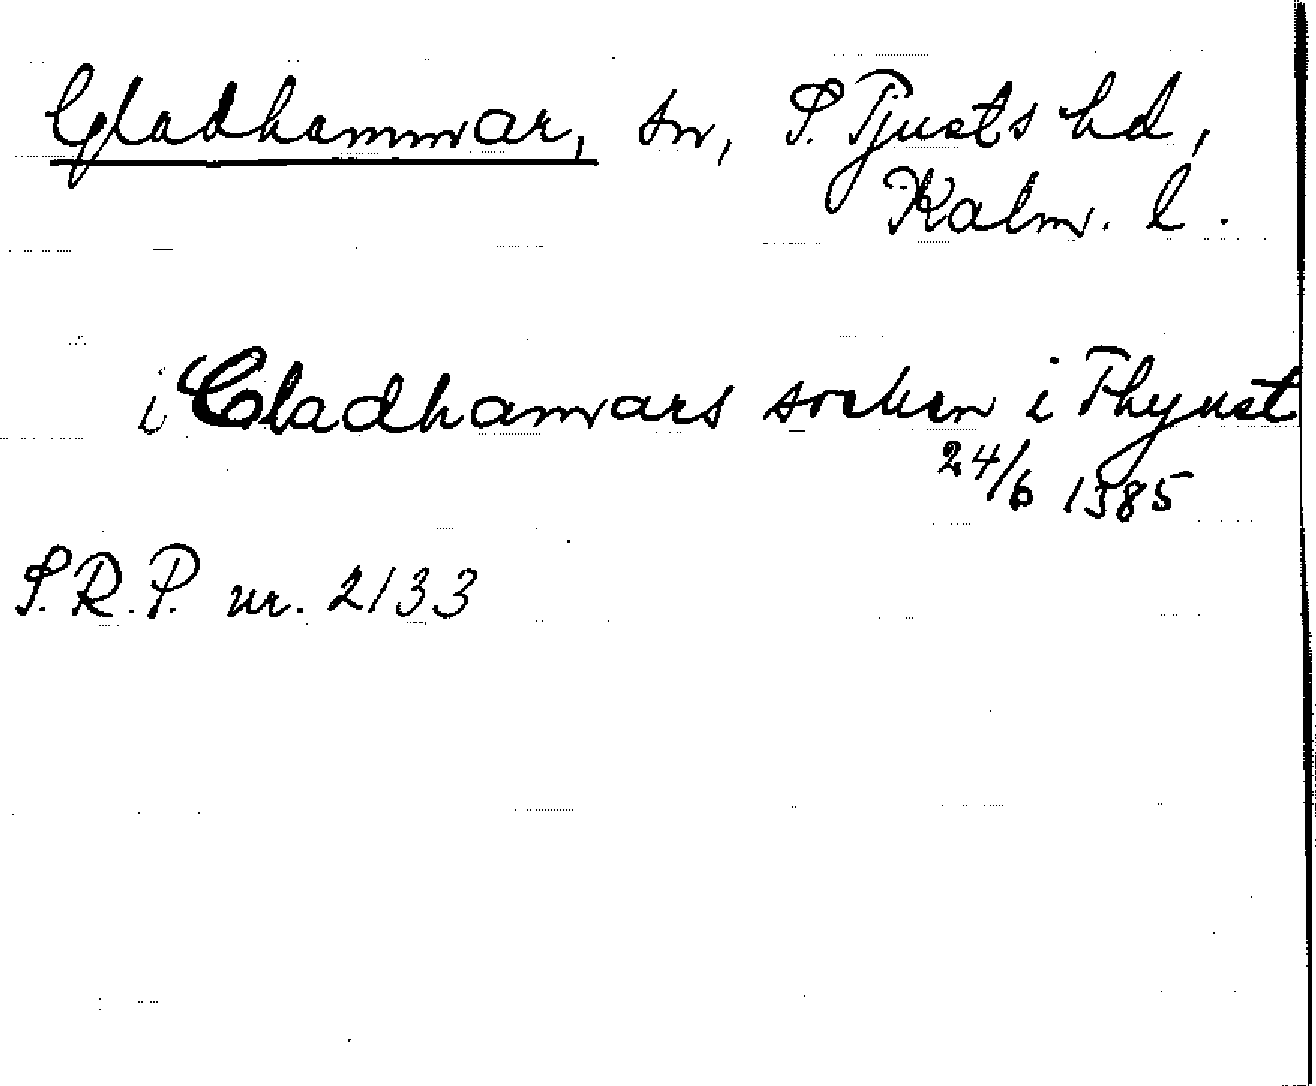 Gladhammar, sn, S. Tjusts hd,
Kalm. l.
i Cladhamars socken i Thyust
24/6 1385
S.R.P. nr. 2133